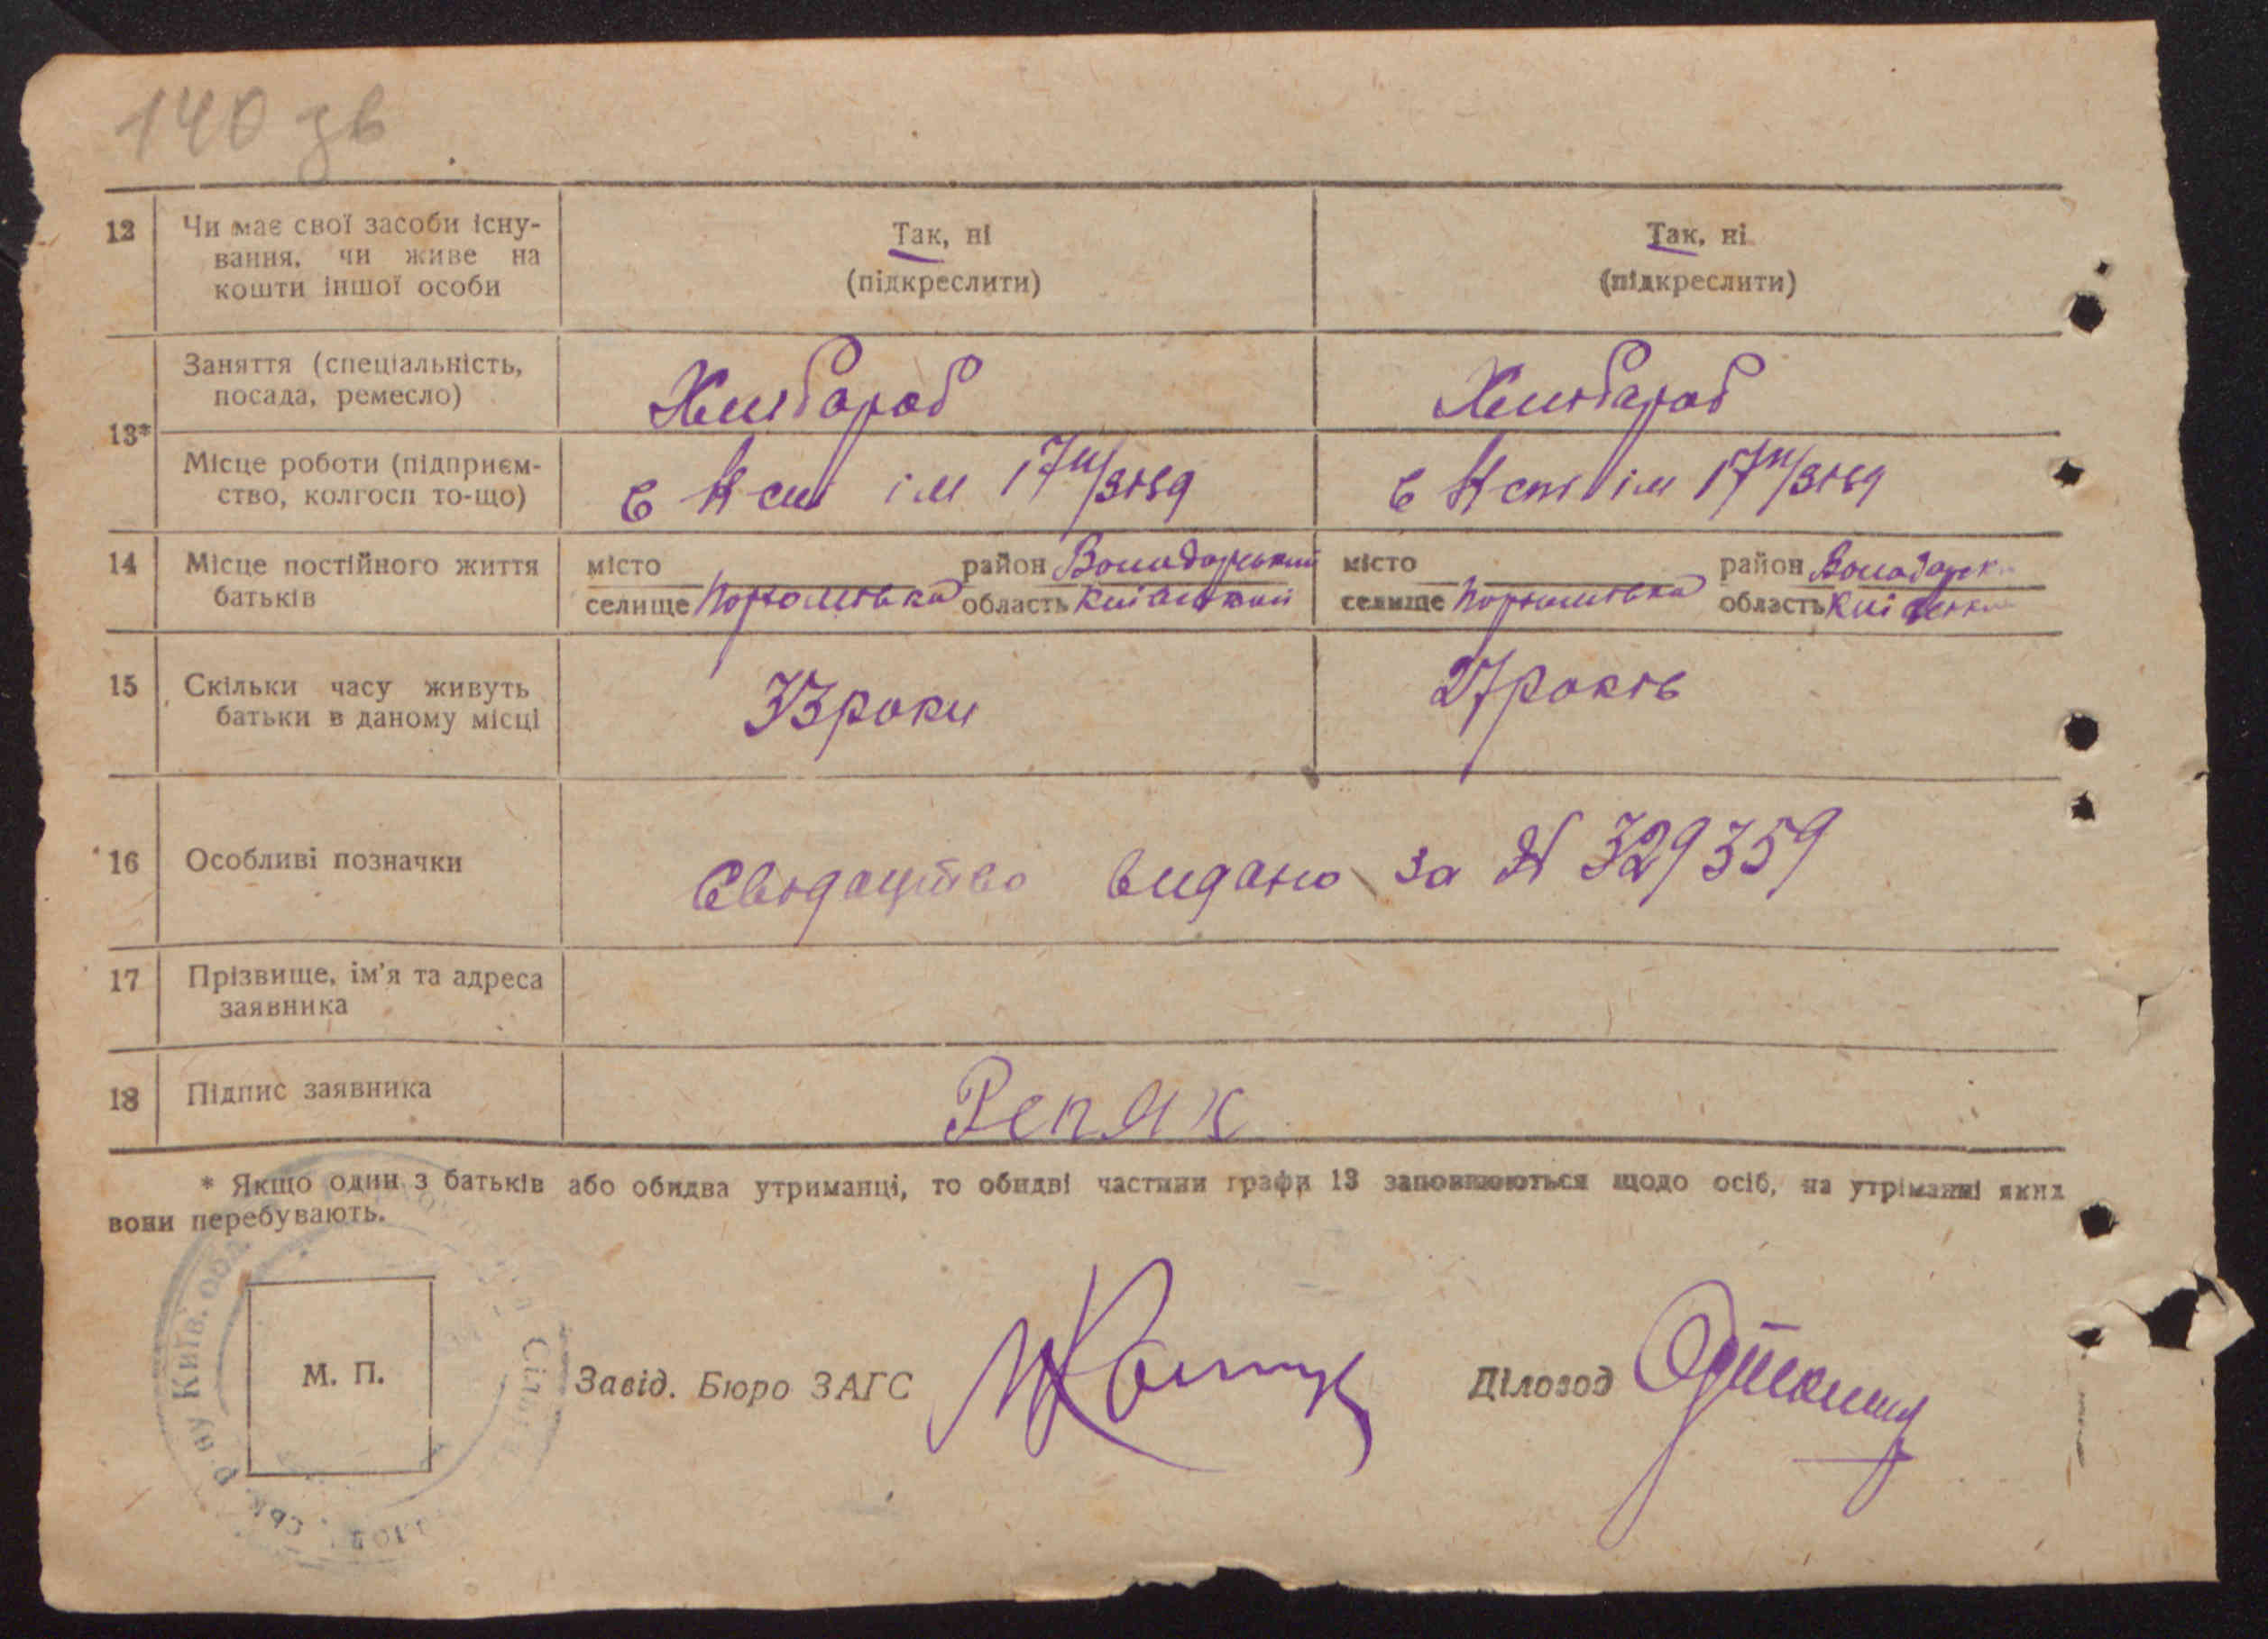 140 зв
12 Чи має свої засоби існу-
вання, чи живе на
кошти іншої особи
Так, ні
(підкреслити)
Так, ні
(підкреслити)
13*
Заняття (спеціальність,
посада, ремесло)
Хлібороб
Хлібароб
Місце роботи (підприєм-
ство, колгосп то-що)
в ім 17
в ім 17
14 Місце постійного життя
батьків
місто район Володарський
селище область Київський
місто район
селище область
15 Скільки часу живуть
батьки в даному місці
33 роки
27 років
16 Особливі позначки
Свідацтво видано за № 329359
17 Прізвище, ім'я та адреса
заявника
18 Підпис заявника
Репях
* Якщо один з батьків або обидва утриманці, то обидві частини графи 13 заповнюються щодо осіб, на утріманні яких
вони перебувають.
М. П.
Київ. обл
Завід. Бюро ЗАГС
Діловод